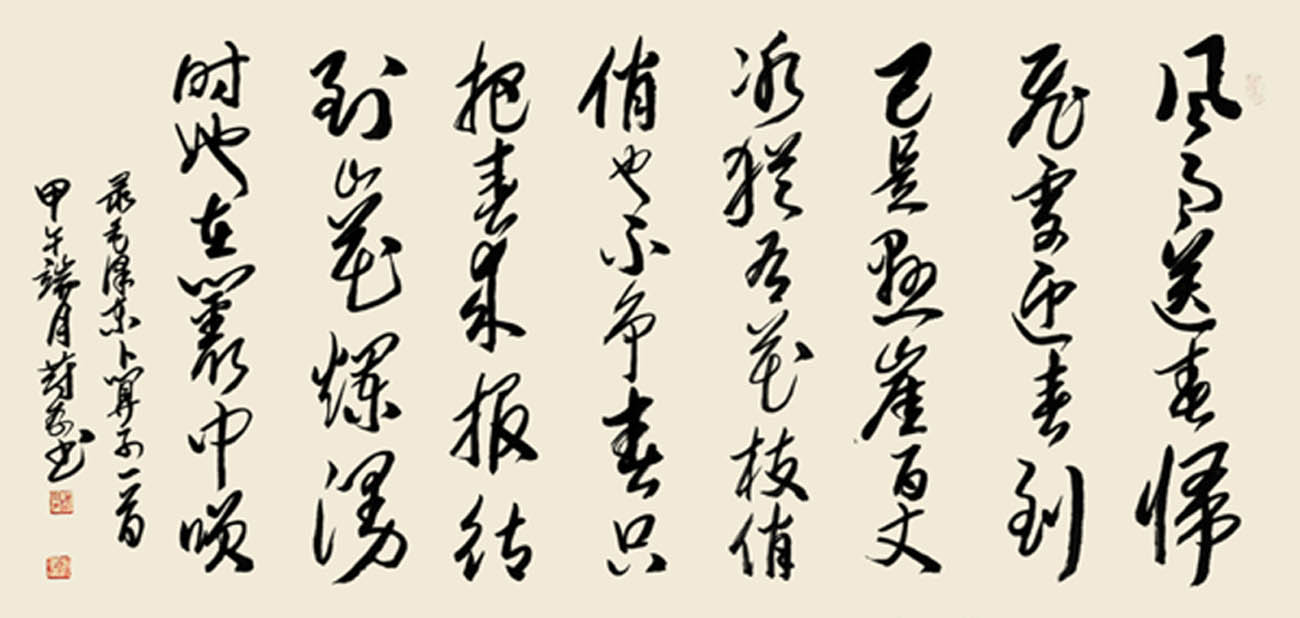 风雨送春帰
飛雪迎春到
已是懸崖百丈
冰猶有花枝俏
俏也不争春只
把春来报待
到山花爛漫
时她在叢中咲
录毛泽东卜算子一首
甲午端月书